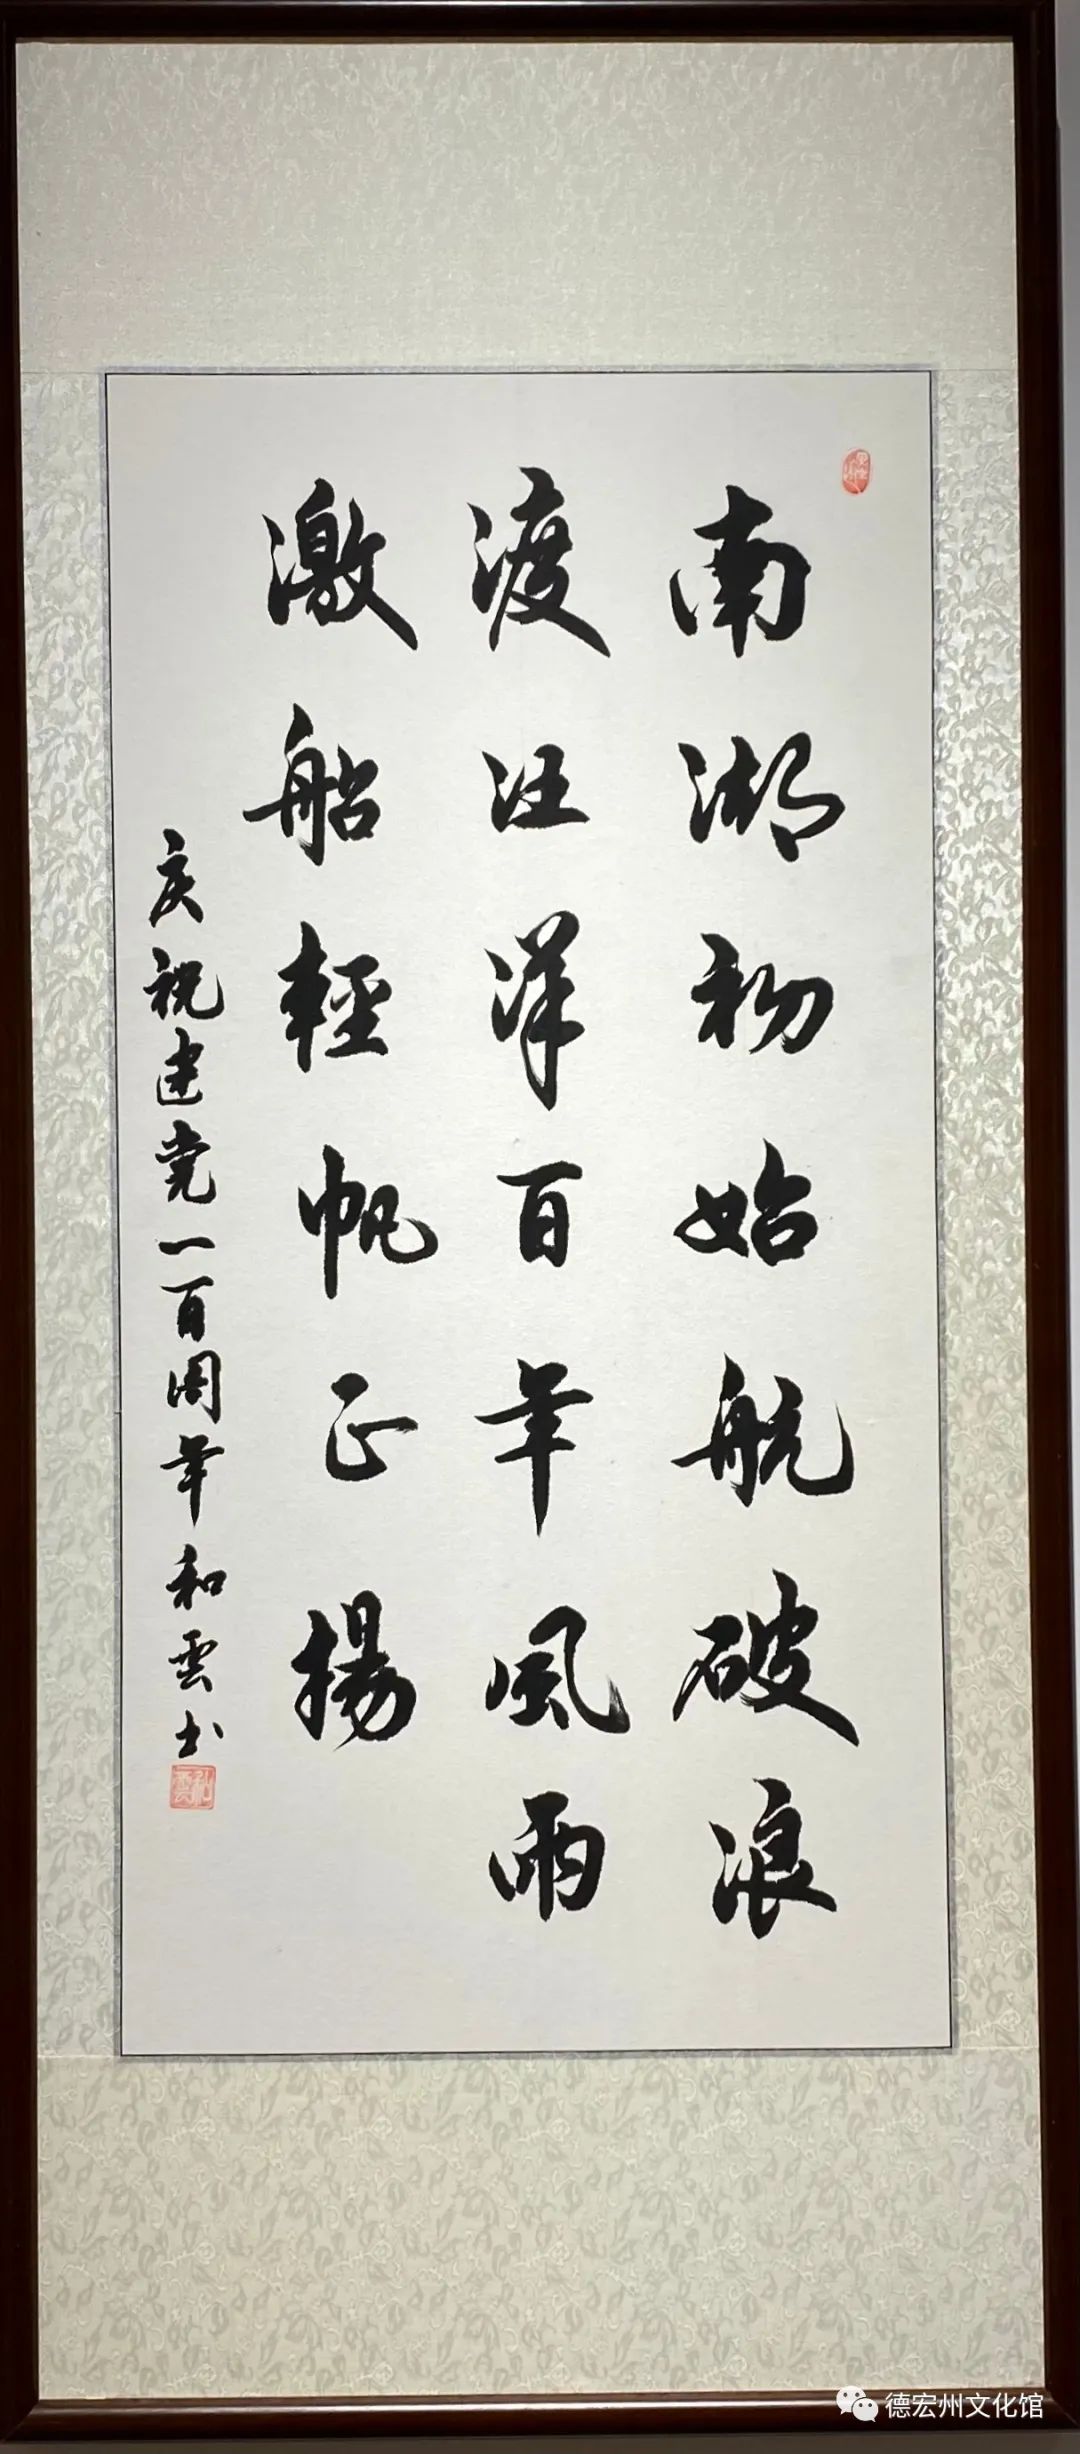 南湖初始航破浪
渡汪洋百年風雨
激船輕帆正揚
庆祝建党一百周年和雲书
和雲
德宏州文化馆